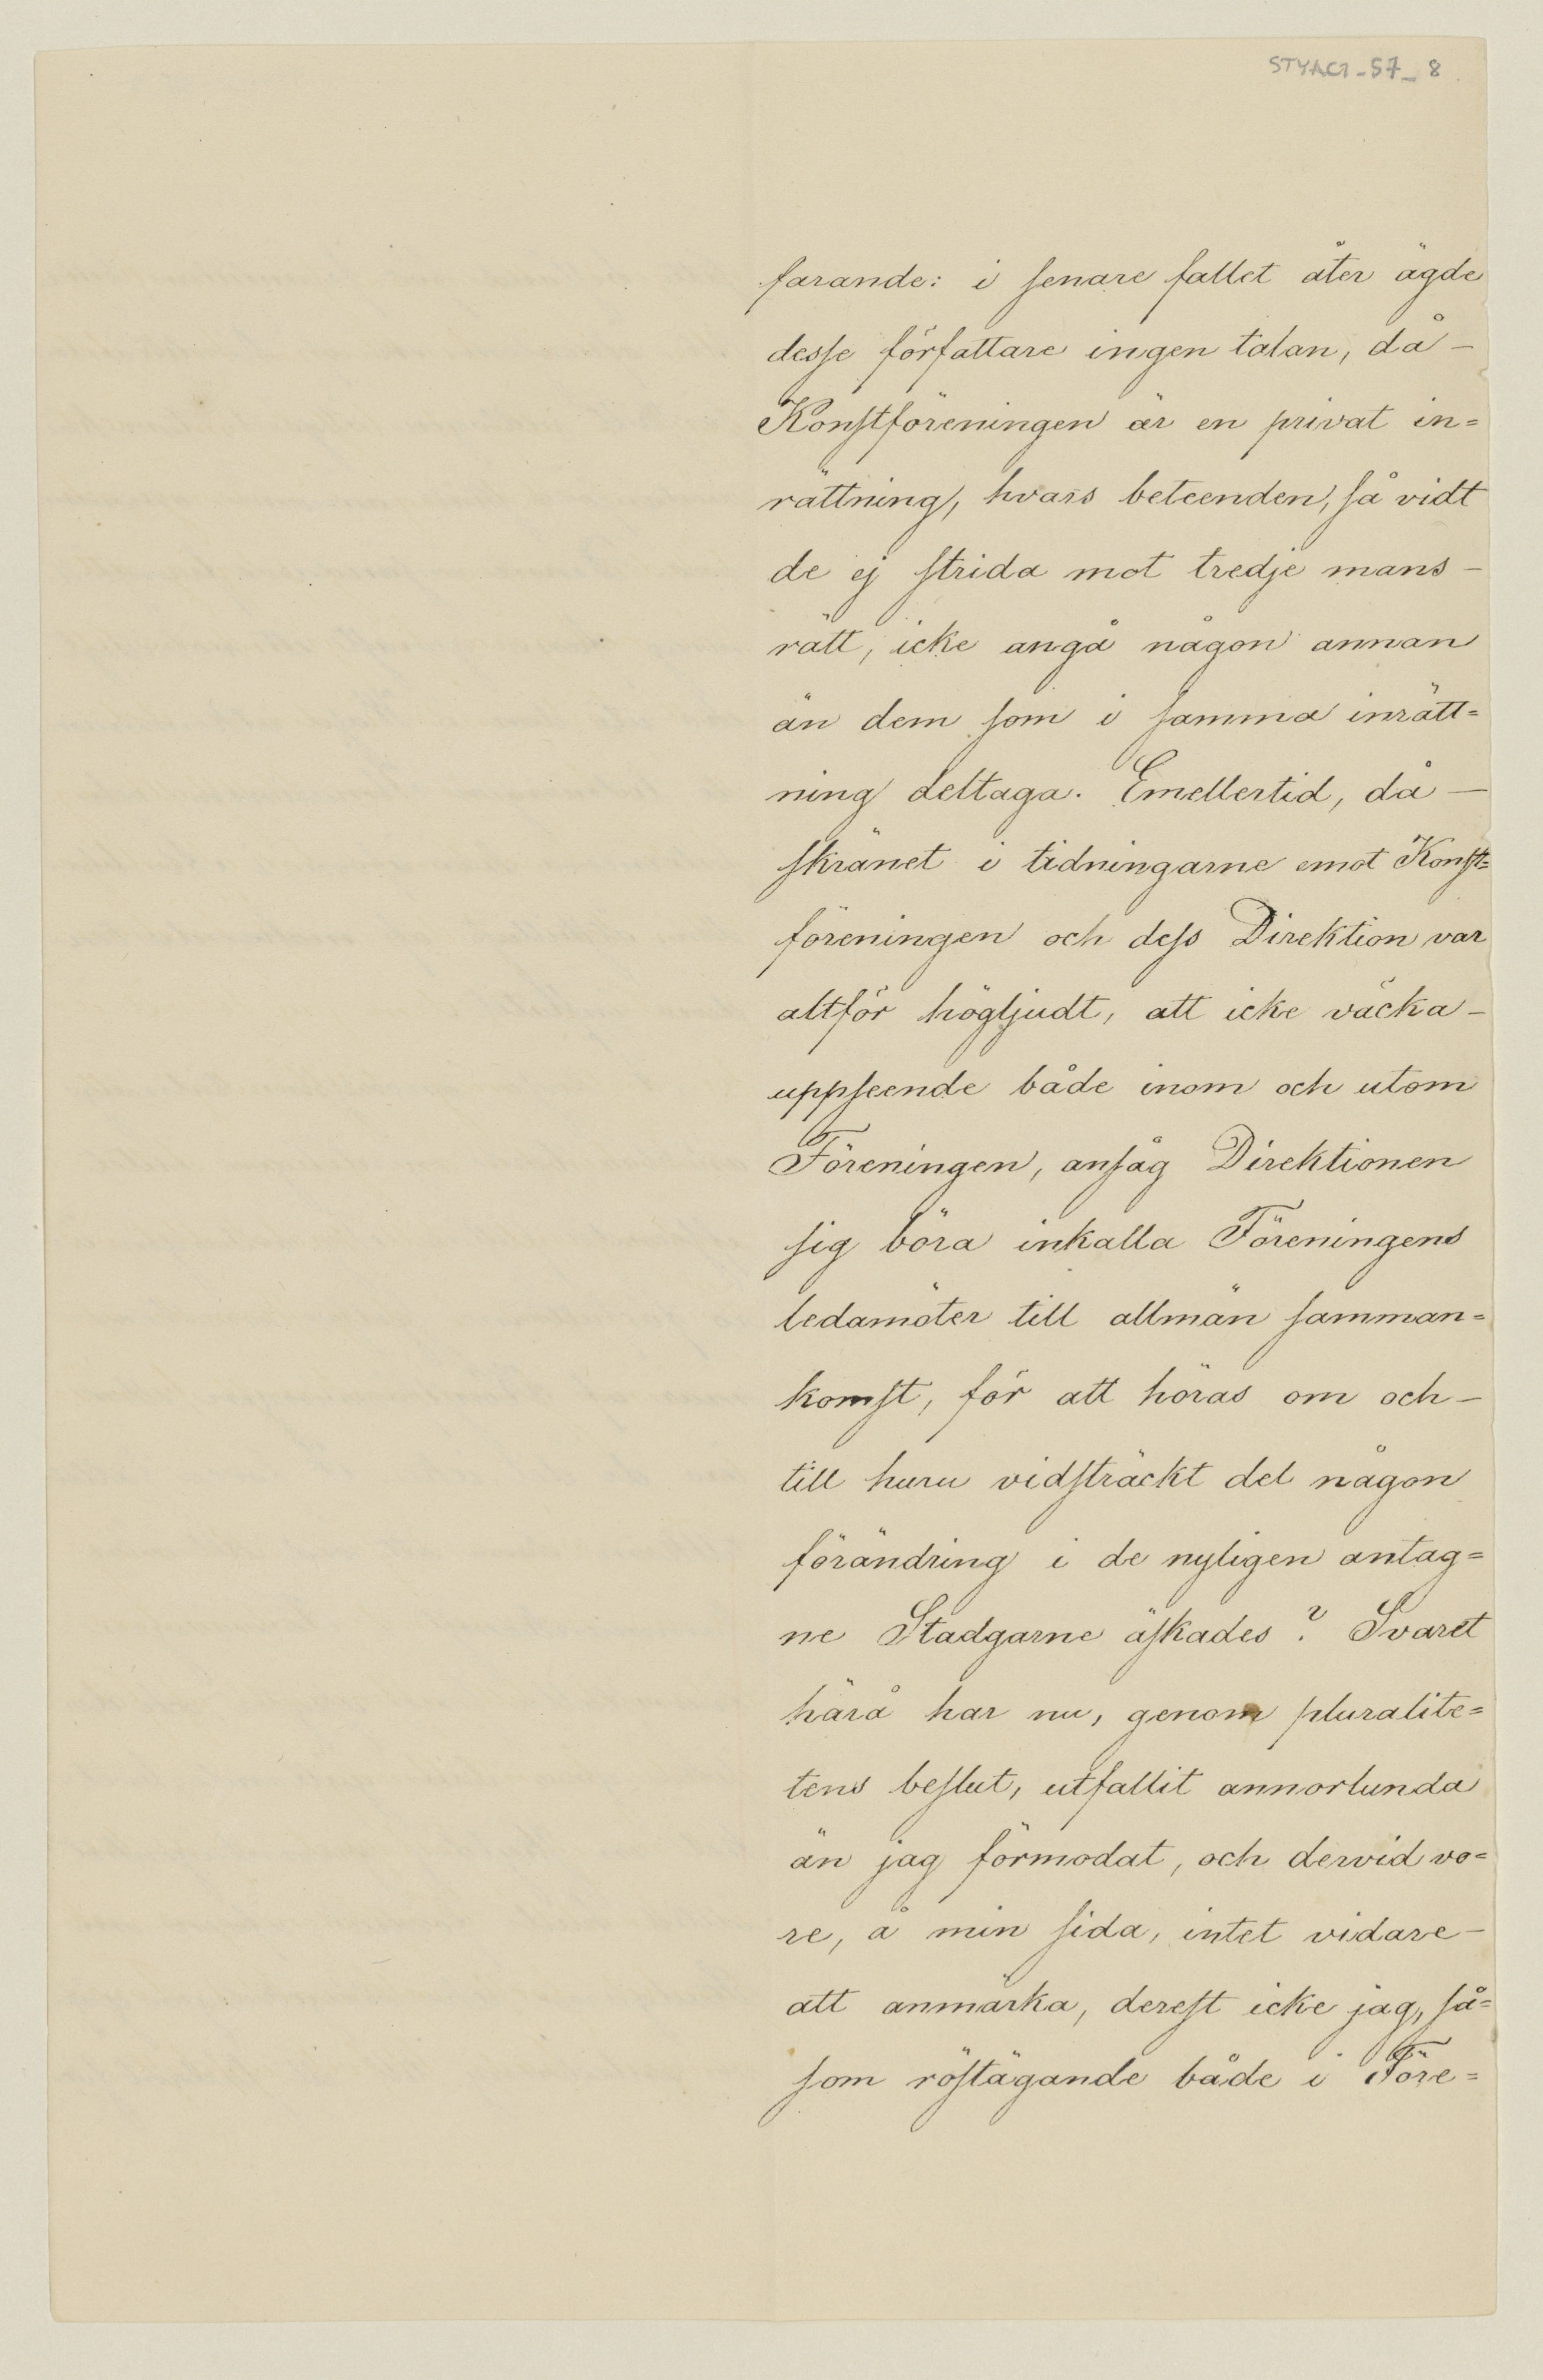 STYAC1-57_8
farande: i senare fallet åter ägde
desse författare ingen talan, då –
Konstföreningen är en privat in=
rättning, hvars beteenden, så vidt
de ej strida mot tredje mans –
rätt, icke angå någon annan
än dem som i samma inrätt=
ning deltaga. Emellertid, då –
skränet i tidningarne emot Konst=
föreningen och dess Direktion var
altför högljudt, att icke väcka –
uppseende både inom och utom
Föreningen, ansåg Direktionen
sig böra inkalla Föreningens
ledamöter till allmän samman=
komst, för att höras om och –
till huru vidsträckt del någon
förändring i de nyligen antag=
ne Stadgarne äskades? Svaret
härå har nu, genom pluralite=
tens beslut, utfallit annorlunda
än jag förmodat, och dervid vo=
re, å min sida, intet vidare –
att anmärka, derest icke jag, så=
som röstägande både i Före=